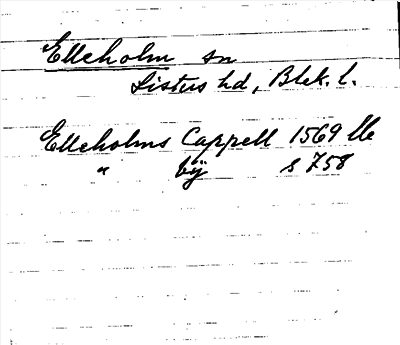 Elleholm sn
Listers hd, Blek. l.
Elleholms Cappell 1569 Ub
" bÿ s 758